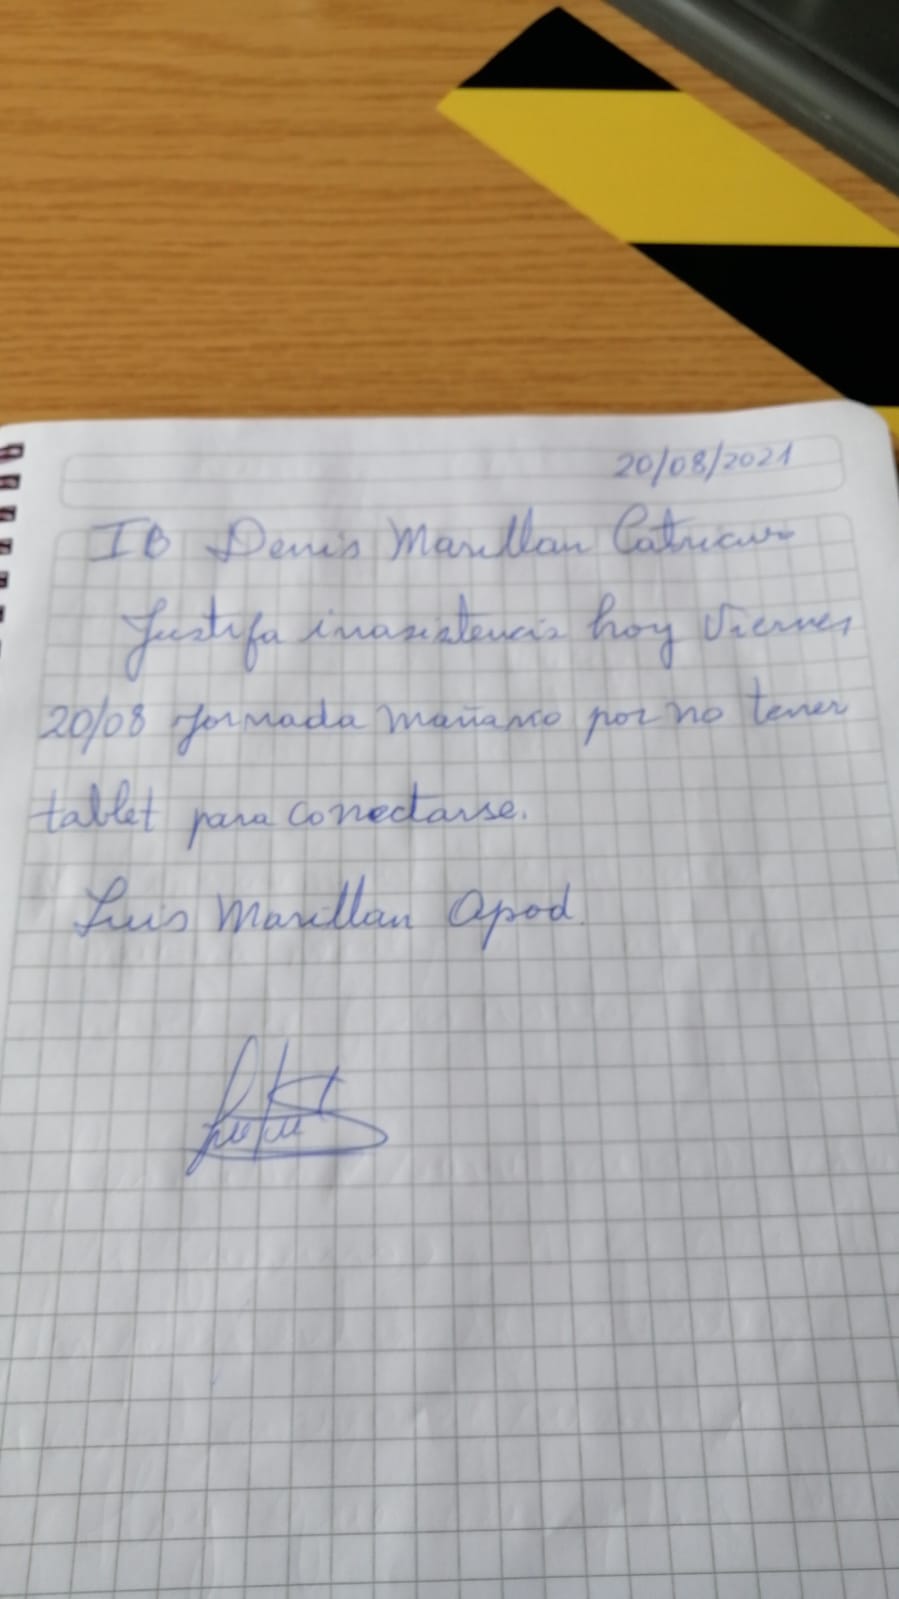 20/08/2021
IB Denis Marillan
Justifa inasistencia hoy Viernes
20/08 Jornada mañana por no tener
tablet para conectarse.
Luis Marillan Apod.